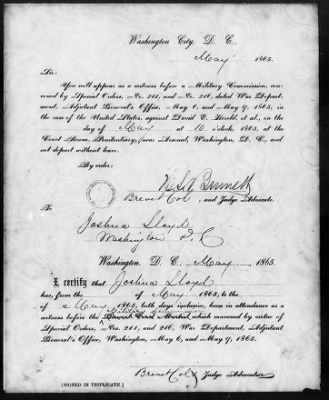 Washington City, D. C.,
May 1865.
Sir:
You will appear as a witness before a Military Commission, convened by Special Orders, Nos. 211, and 216, dated War Department, Adjutant General's Office, May 6, and May 9, 1865, in
the case of the United States, against David E. Herold, et al., on the
day of May at 10 o'clock, 1865, at the
Court Room, Penitentiary, Arsenal, Washington, D. C., and
not depart without leave.
By order:
Brevet Col, and Judge Advocate.
To
Joshua Lloyd
Washington D.C
Washington, D. C., May 1865.
I certify that Joshua Lloyd
has, from the of May 1865, to the
of May 1865, both days inclusive, been in attendance as a
witness before the convened by virtue of
Special Orders, Nos. 211, and 216, War Department, Adjutant
General's Office, Washington, May 6, and May 9, 1865.
Brevet Col & Judge Advocate.
(SIGNED IN TRIPLICATE.)